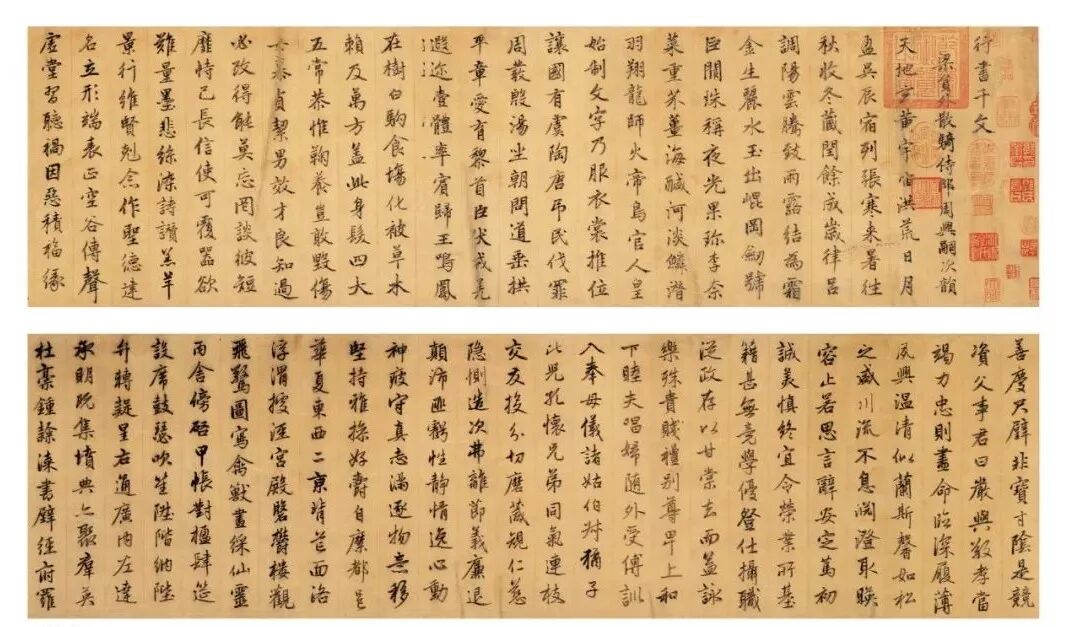 行書千文
梁員外散騎侍郎周興嗣次韻
天地玄黃宇宙洪荒日月
盈昃辰宿列張寒来暑往
秋收冬藏閏餘成歲律呂
調陽雲騰致雨露結為霜
金生麗水玉出崐岡劒號
巨闕珠稱夜光果珍李柰
菜重芥薑海鹹河淡鱗潛
羽翔龍師火帝鳥官人皇
始制文字乃服衣裳推位
讓國有虞陶唐弔民伐罪
周發殷湯坐朝問道垂拱
平章愛育黎首臣伏戎羌
遐迩壹體率賓歸王鳴鳳
在樹白駒食場化被草木
賴及萬方盖此身髮四大
五常恭惟鞠養豈敢毀傷
女慕貞絜男效才良知過
必改得能莫忘罔談彼短
靡恃己長信使可覆器欲
難量墨悲絲染詩讚羔羊
景行維賢剋念作聖德建
名立形端表正空谷傳聲
虛堂習聽禍因惡積福緣
善慶尺璧非寶寸陰是競
資父事君曰嚴與敬孝當
竭力忠則盡命臨深履薄
夙興温凊似蘭斯馨如松
之盛川流不息淵澄取暎
容止若思言辭安定篤初
誠美慎終宜令榮業所基
籍甚無竟學優登仕攝職
從政存以甘棠去而益詠
樂殊貴賤禮別尊卑上和
下睦夫唱婦隨外受傅訓
入奉母儀諸姑伯叔猶子
比兒孔懷兄弟同氣連枝
交友投分切磨箴規仁慈
隱惻造次弗離節義廉退
顛沛匪虧性靜情逸心動
神疲守真志滿逐物意移
堅持雅操好爵自縻都邑
華夏東西二京背芒面洛
浮渭據涇宮殿盤鬱樓觀
飛驚圖寫禽獸畫綵仙靈
丙舍傍啟甲帳對楹肆筵
設席鼓瑟吹笙陞階納陛
弁轉疑星右通廣內左達
承明既集墳典亦聚群英
杜稾鍾隸漆書壁經府羅